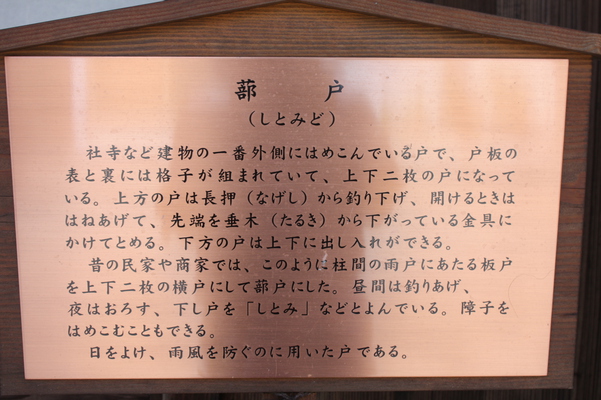 蔀　戸
（しとみど）
社寺など建物の一番外側にはめこんでいる戸で、戸板の
表と裏には格子が組まれていて、上下二枚の戸になって
いる。上方の戸は長押（なげし）から釣り下げ、開けるときは
はねあげて、先端を垂木（たるき）から下がっている金具に
かけてとめる。下方の戸は上下に出し入れができる。
昔の民家や商家では、このように柱間の雨戸にあたる板戸
を上下二枚の横戸にして蔀戸にした。昼間は釣りあげ、
夜はおろす、下し戸を「しとみ」などとよんでいる。障子を
はめこむこともできる。
日をよけ、雨風を防ぐのに用いた戸である。